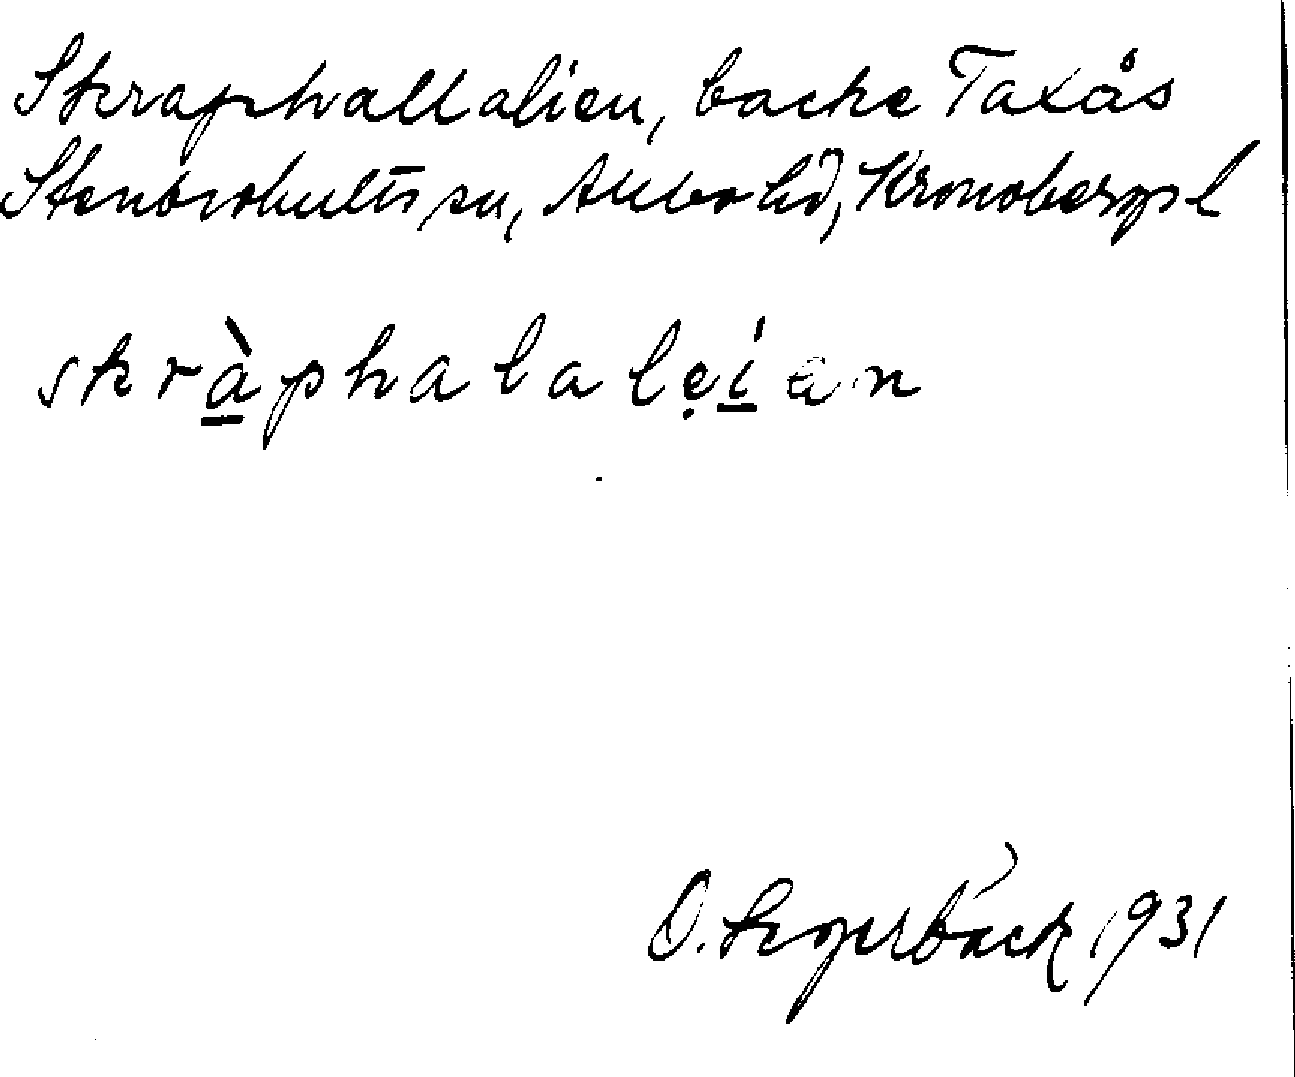 Skraphallalien, backe Taxås
Stenbrohults sn, Allbo hd, Kronobergs l
skràphalalẹían
O. Segerbäck 1931